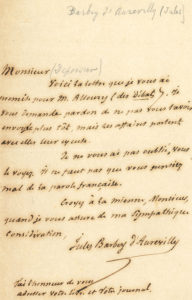 Barbey d'Aurevilly (Jules)
Monsieur
Voici la lettre que je vous ai
pour M.
vous demande pardon de ne pas l'avoir
envoyée plus tôt, mais les affaires portent
avec elles leur excuse.
Je ne vous ai pas oublié, vous
le voyez. Il ne faut pas que vous pensiez
mal de la parole française.
Croyez à la mienne, Monsieur,
quand je vous assure de ma sympathique
considération.
Jules Barbey d'Aurevilly
J'ai l'honneur de vous
adresser votre et votre journal